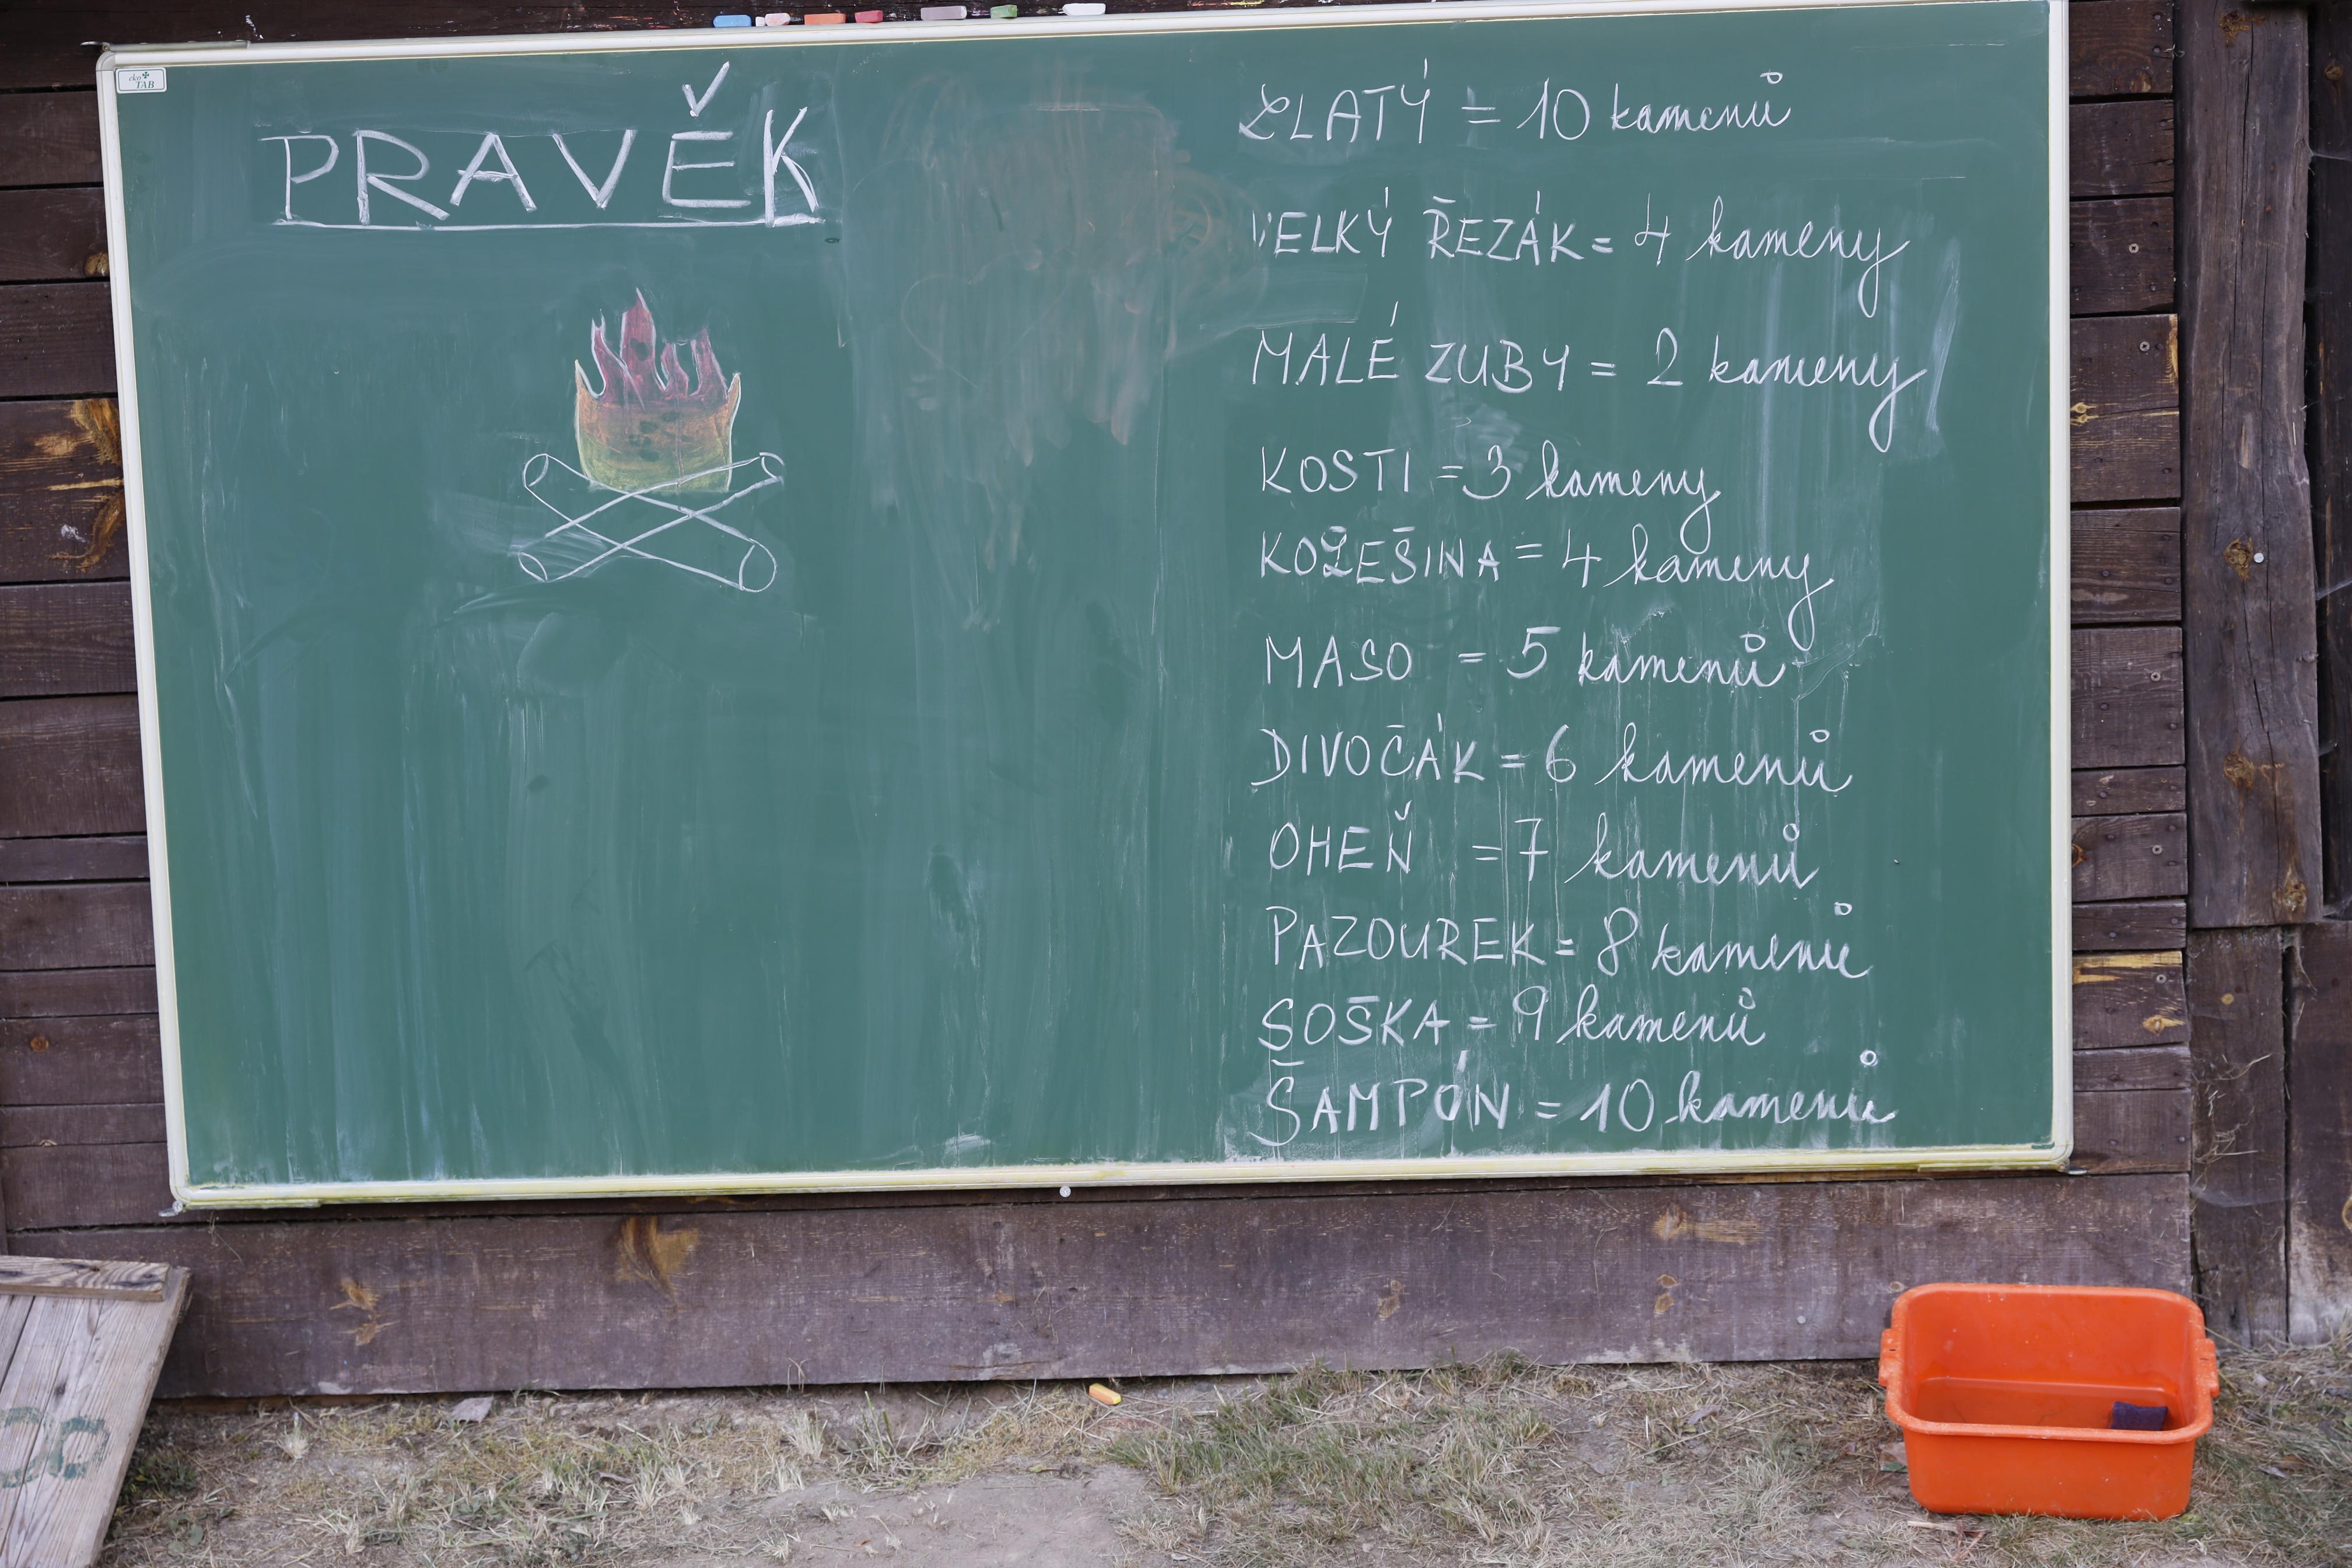 eko TAB
PRAVĚK
ZLATÝ = 10 kamenů
VELKÝ ŘEZÁK = 4 kameny
MALÉ ZUBY = 2 kameny
KOSTI = 3 kameny
KOŽEŠINA = 4 kameny
MASO = 5 kamenů
DIVOČÁK = 6 kamenů
OHEŇ = 7 kamenů
PAZOUREK = 8 kamenů
SOŠKA = 9 kamenů
ŠAMPÓN = 10 kamenů